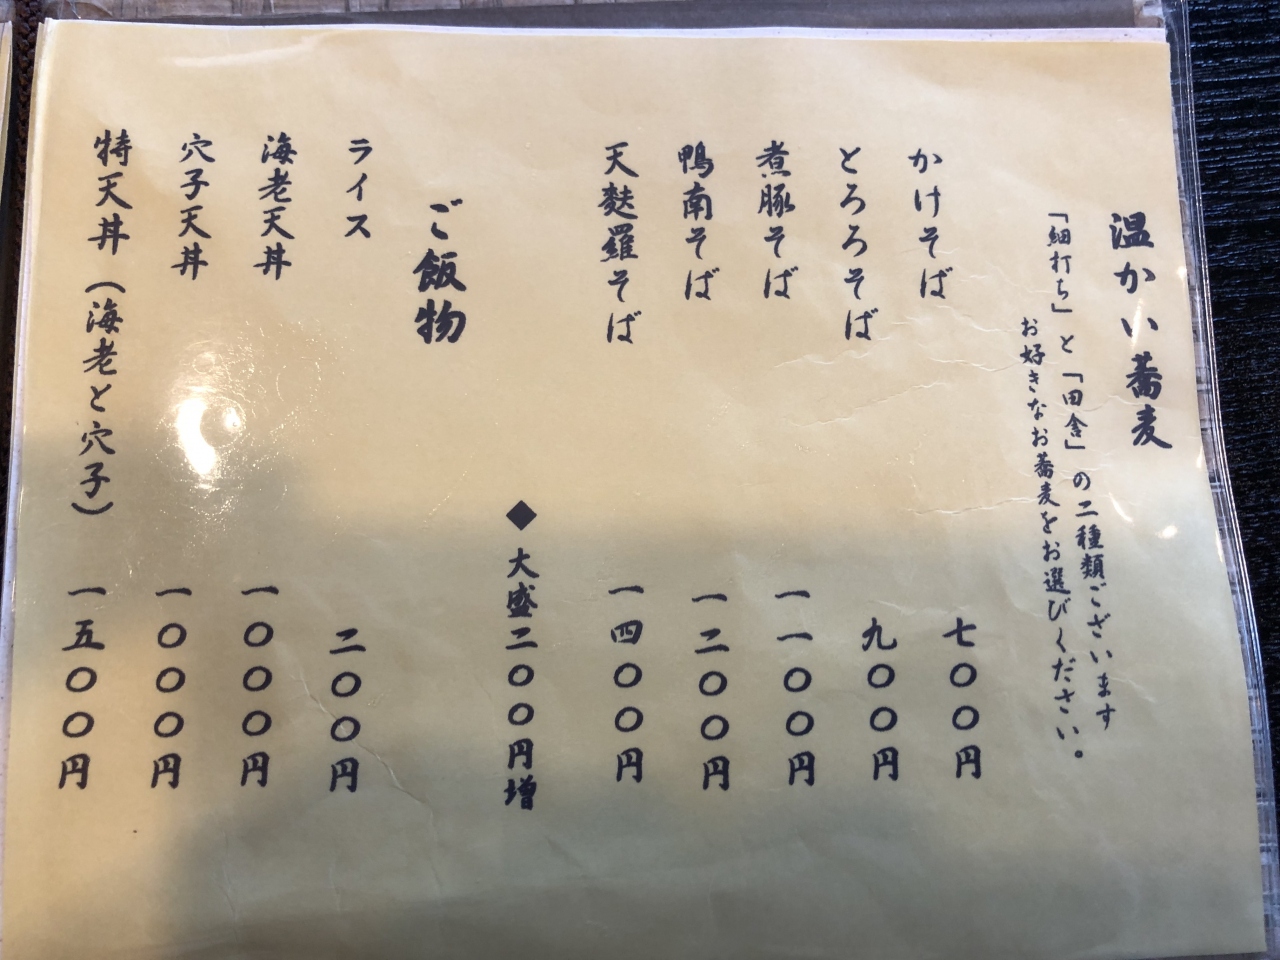 温かい蕎麦
「細打ち」と「田舎」の二種類ございます
お好きなお蕎麦をお選びください。
かけそば 七〇〇円
とろろそば 九〇〇円
煮豚そば 一一〇〇円
鴨南そば 一二〇〇円
天麩羅そば 一四〇〇円
◆大盛二〇〇円増
ご飯物
ライス 二〇〇円
海老天丼 一〇〇〇円
穴子天丼 一〇〇〇円
特天丼（海老と穴子） 一五〇〇円